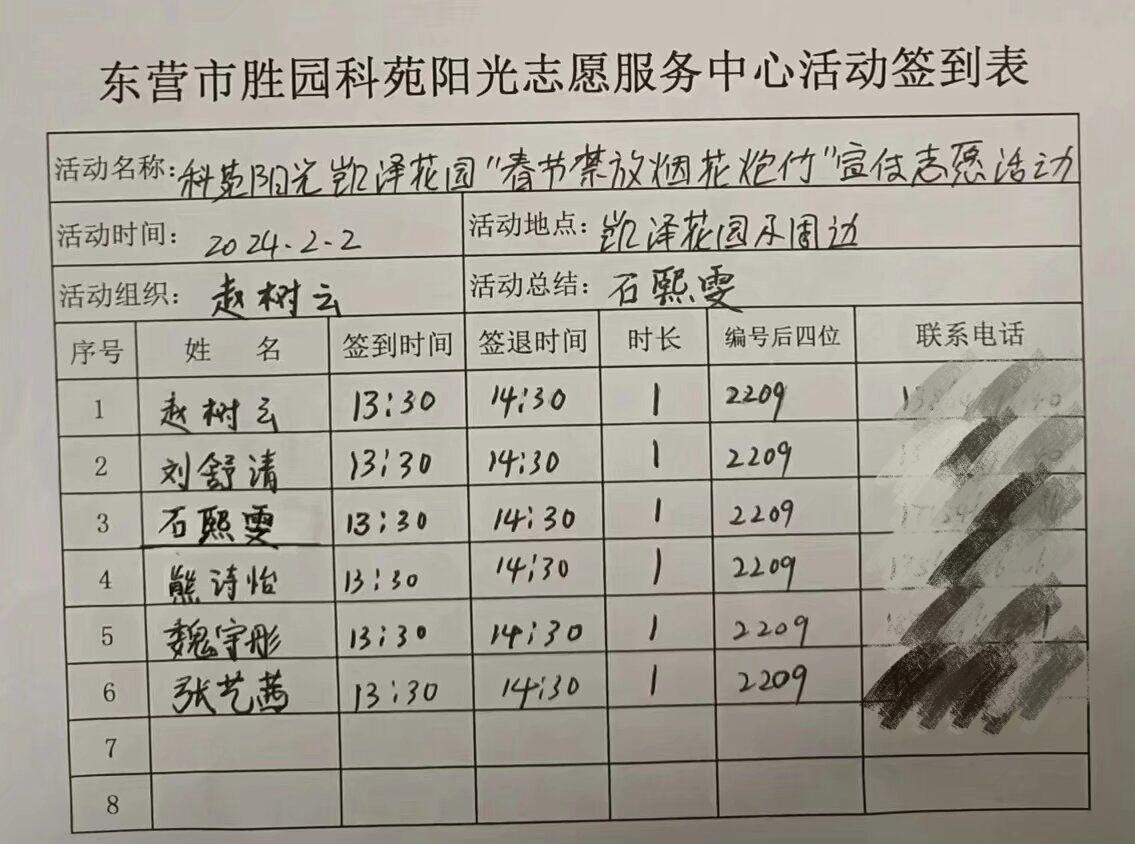 东营市胜园科苑阳光志愿服务中心活动签到表
活动名称:科苑阳光凯泽花园"春节禁放烟花炮竹"宣传志愿活动
活动时间: 2024.2.2 活动地点: 凯泽花园及周边
活动组织: 赵树云 活动总结: 石熙雯
序号 姓 名 签到时间 签退时间 时长 编号后四位 联系电话
1 赵树云 13:30 14:30 1 2209
2 刘舒清 13:30 14:30 1 2209
3 石熙雯 13:30 14:30 1 2209
4 熊诗怡 13:30 14:30 1 2209
5 魏宇彤 13:30 14:30 1 2209
6 张艺茜 13:30 14:30 1 2209
7
8